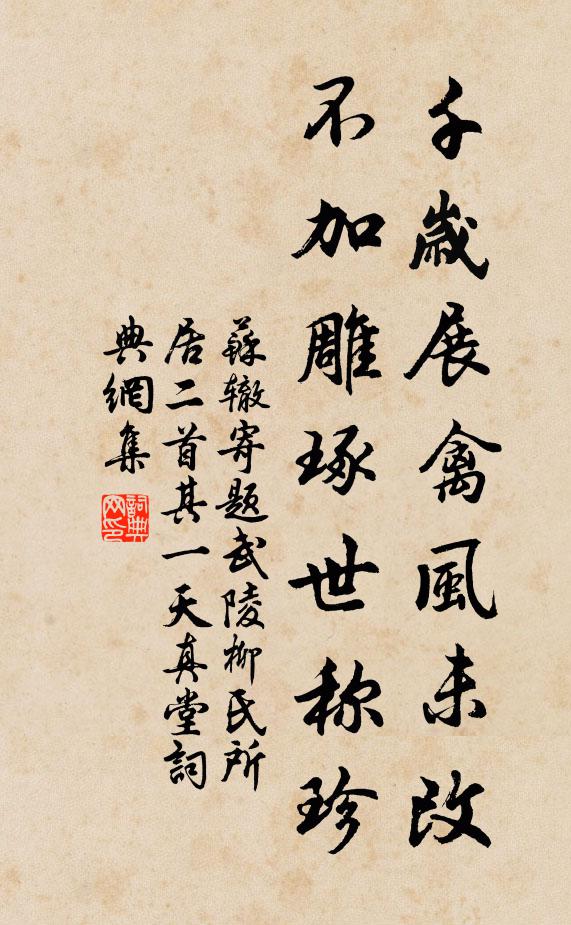 千歲展禽風未改
不加雕琢世称珍
蘇辙寄题武陵柳氏所
居二首其一天真堂詞
典網集
詞典网印